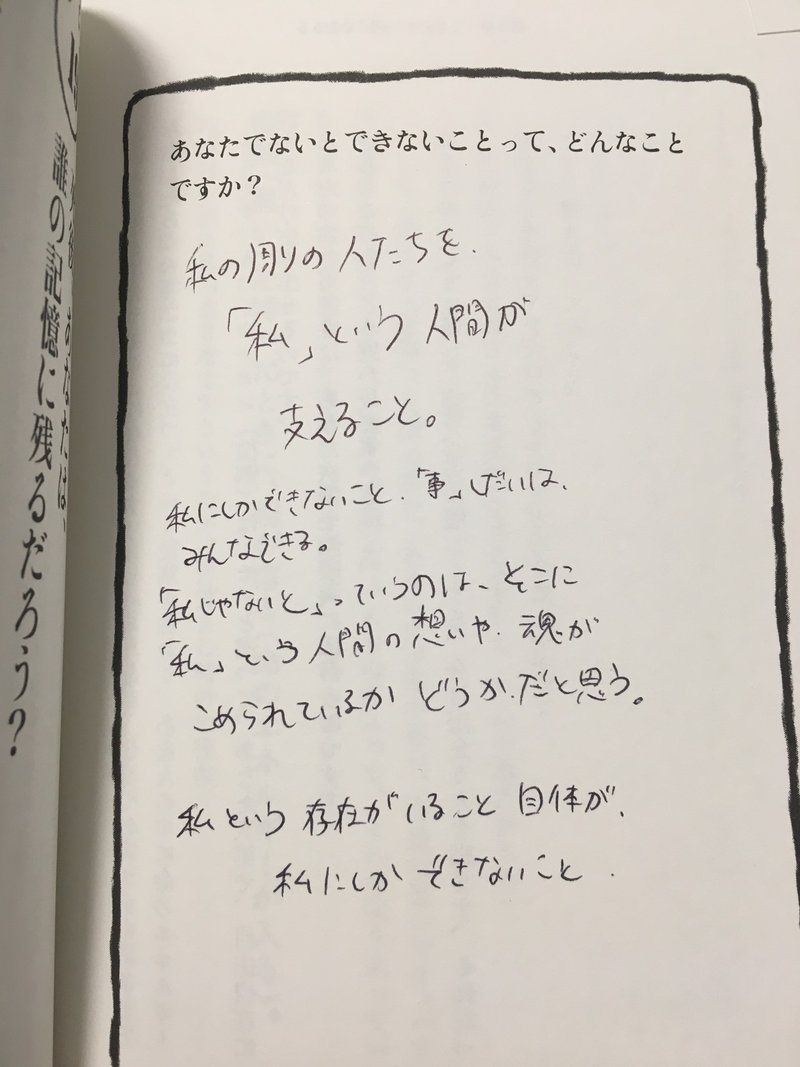 あなたでないとできないことって、どんなこと
ですか？
私の周りの人たちを、
「私」という人間が
支えること。
私にしかできないこと、「事」しだいは、
みんなできる。
「私じゃないと」っていうのは、そこに
「私」という人間の想いや、魂が
こめられているかどうか、だと思う。
私という存在がいること自体が、
私にしかできないこと、
あなたは、
誰の記憶に残るだろう？